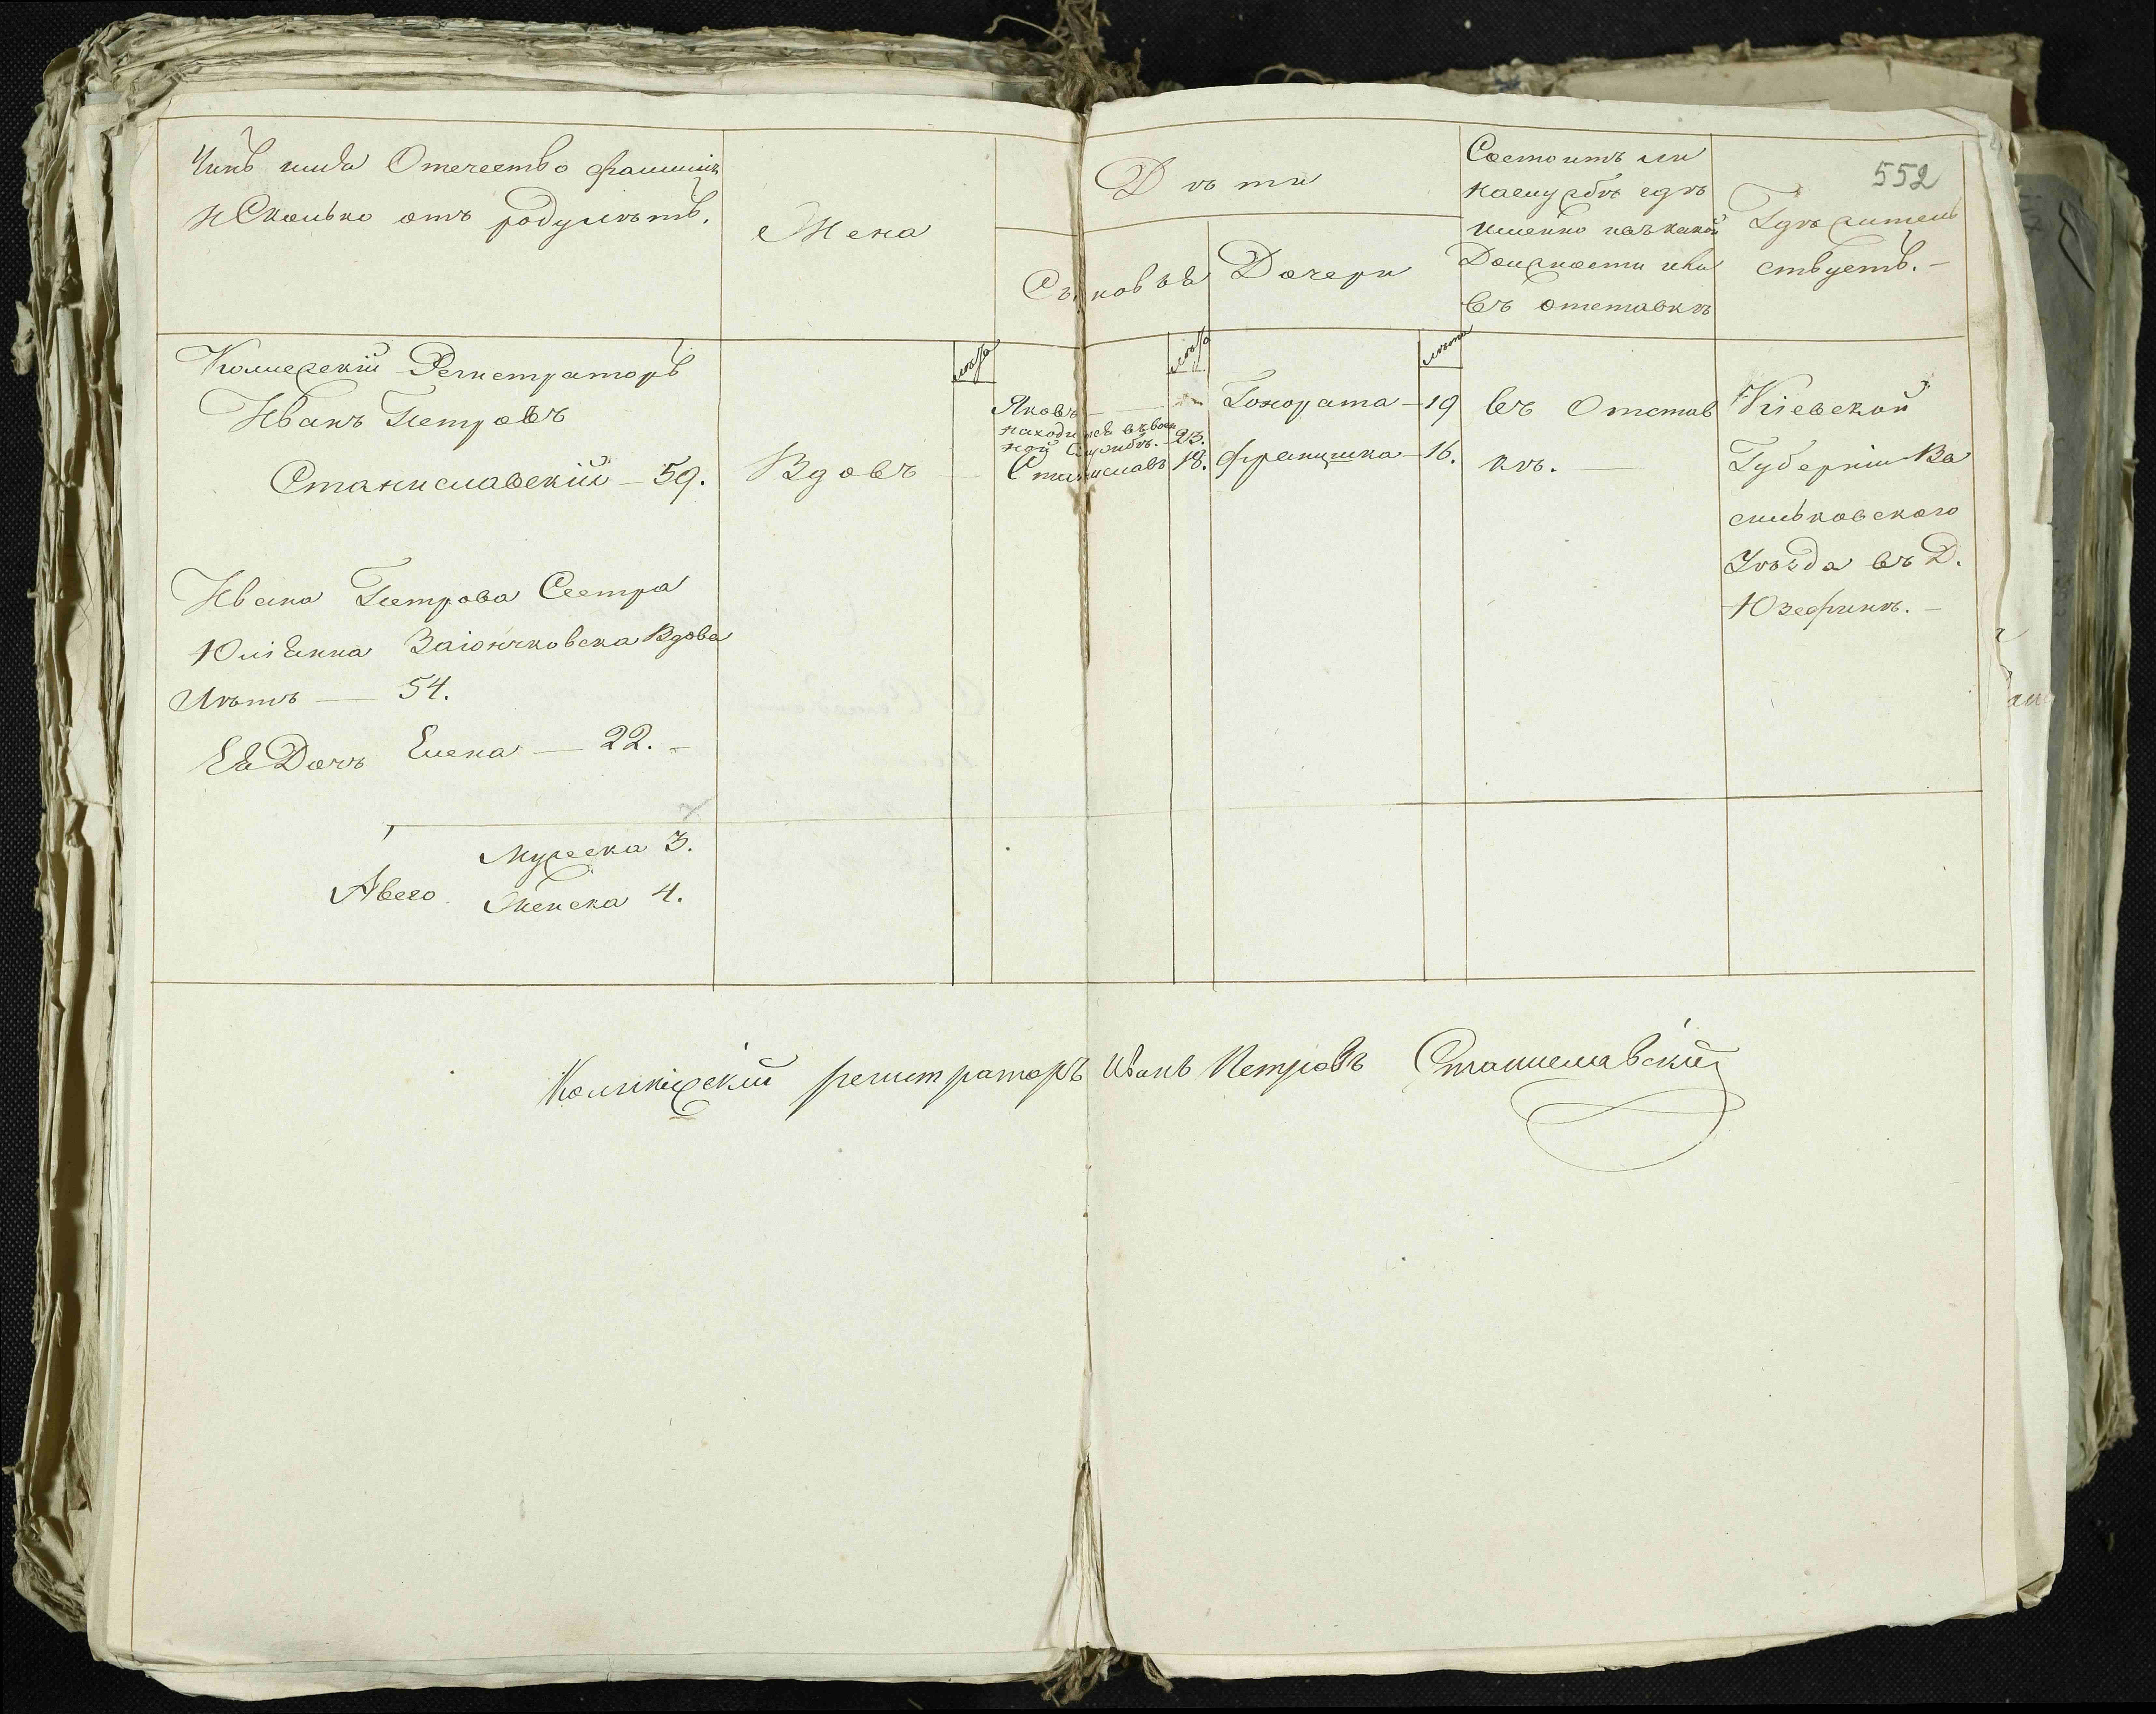 552
Чинъ имя Отечество фамилія
и Сколько отъ роду лѣтъ.
Жена
Дѣти
Сыновья
Дочери
Состоитъ ли
на службѣ гдѣ
именно въ какой
Должности или
въ отставкѣ
Гдѣ жител
ствуетъ. —
лѣта
лѣта
лѣта
Коллежскій Регистраторъ
Иванъ Петровъ
Станиславскій — 59.
Вдовъ
Яковъ —
находится въ воен
ной Службѣ. — 23.
Станиславъ 18.
Гонората — 19
Францишка — 16.
въ Отстав
кѣ. —
Кіевской
Губерніи Ва
сильковского
Уѣзда въ Д.
Юзефинѣ. —
Ивана Петрова Сестра
Юліанна Заіончковска Вдова
Лѣтъ — 54.
Ея Дочъ Елена — 22. —
Мужеска 3.
А всего
Женска 4.
Коллежскій регистраторъ Иванъ Петровъ Станиславскій